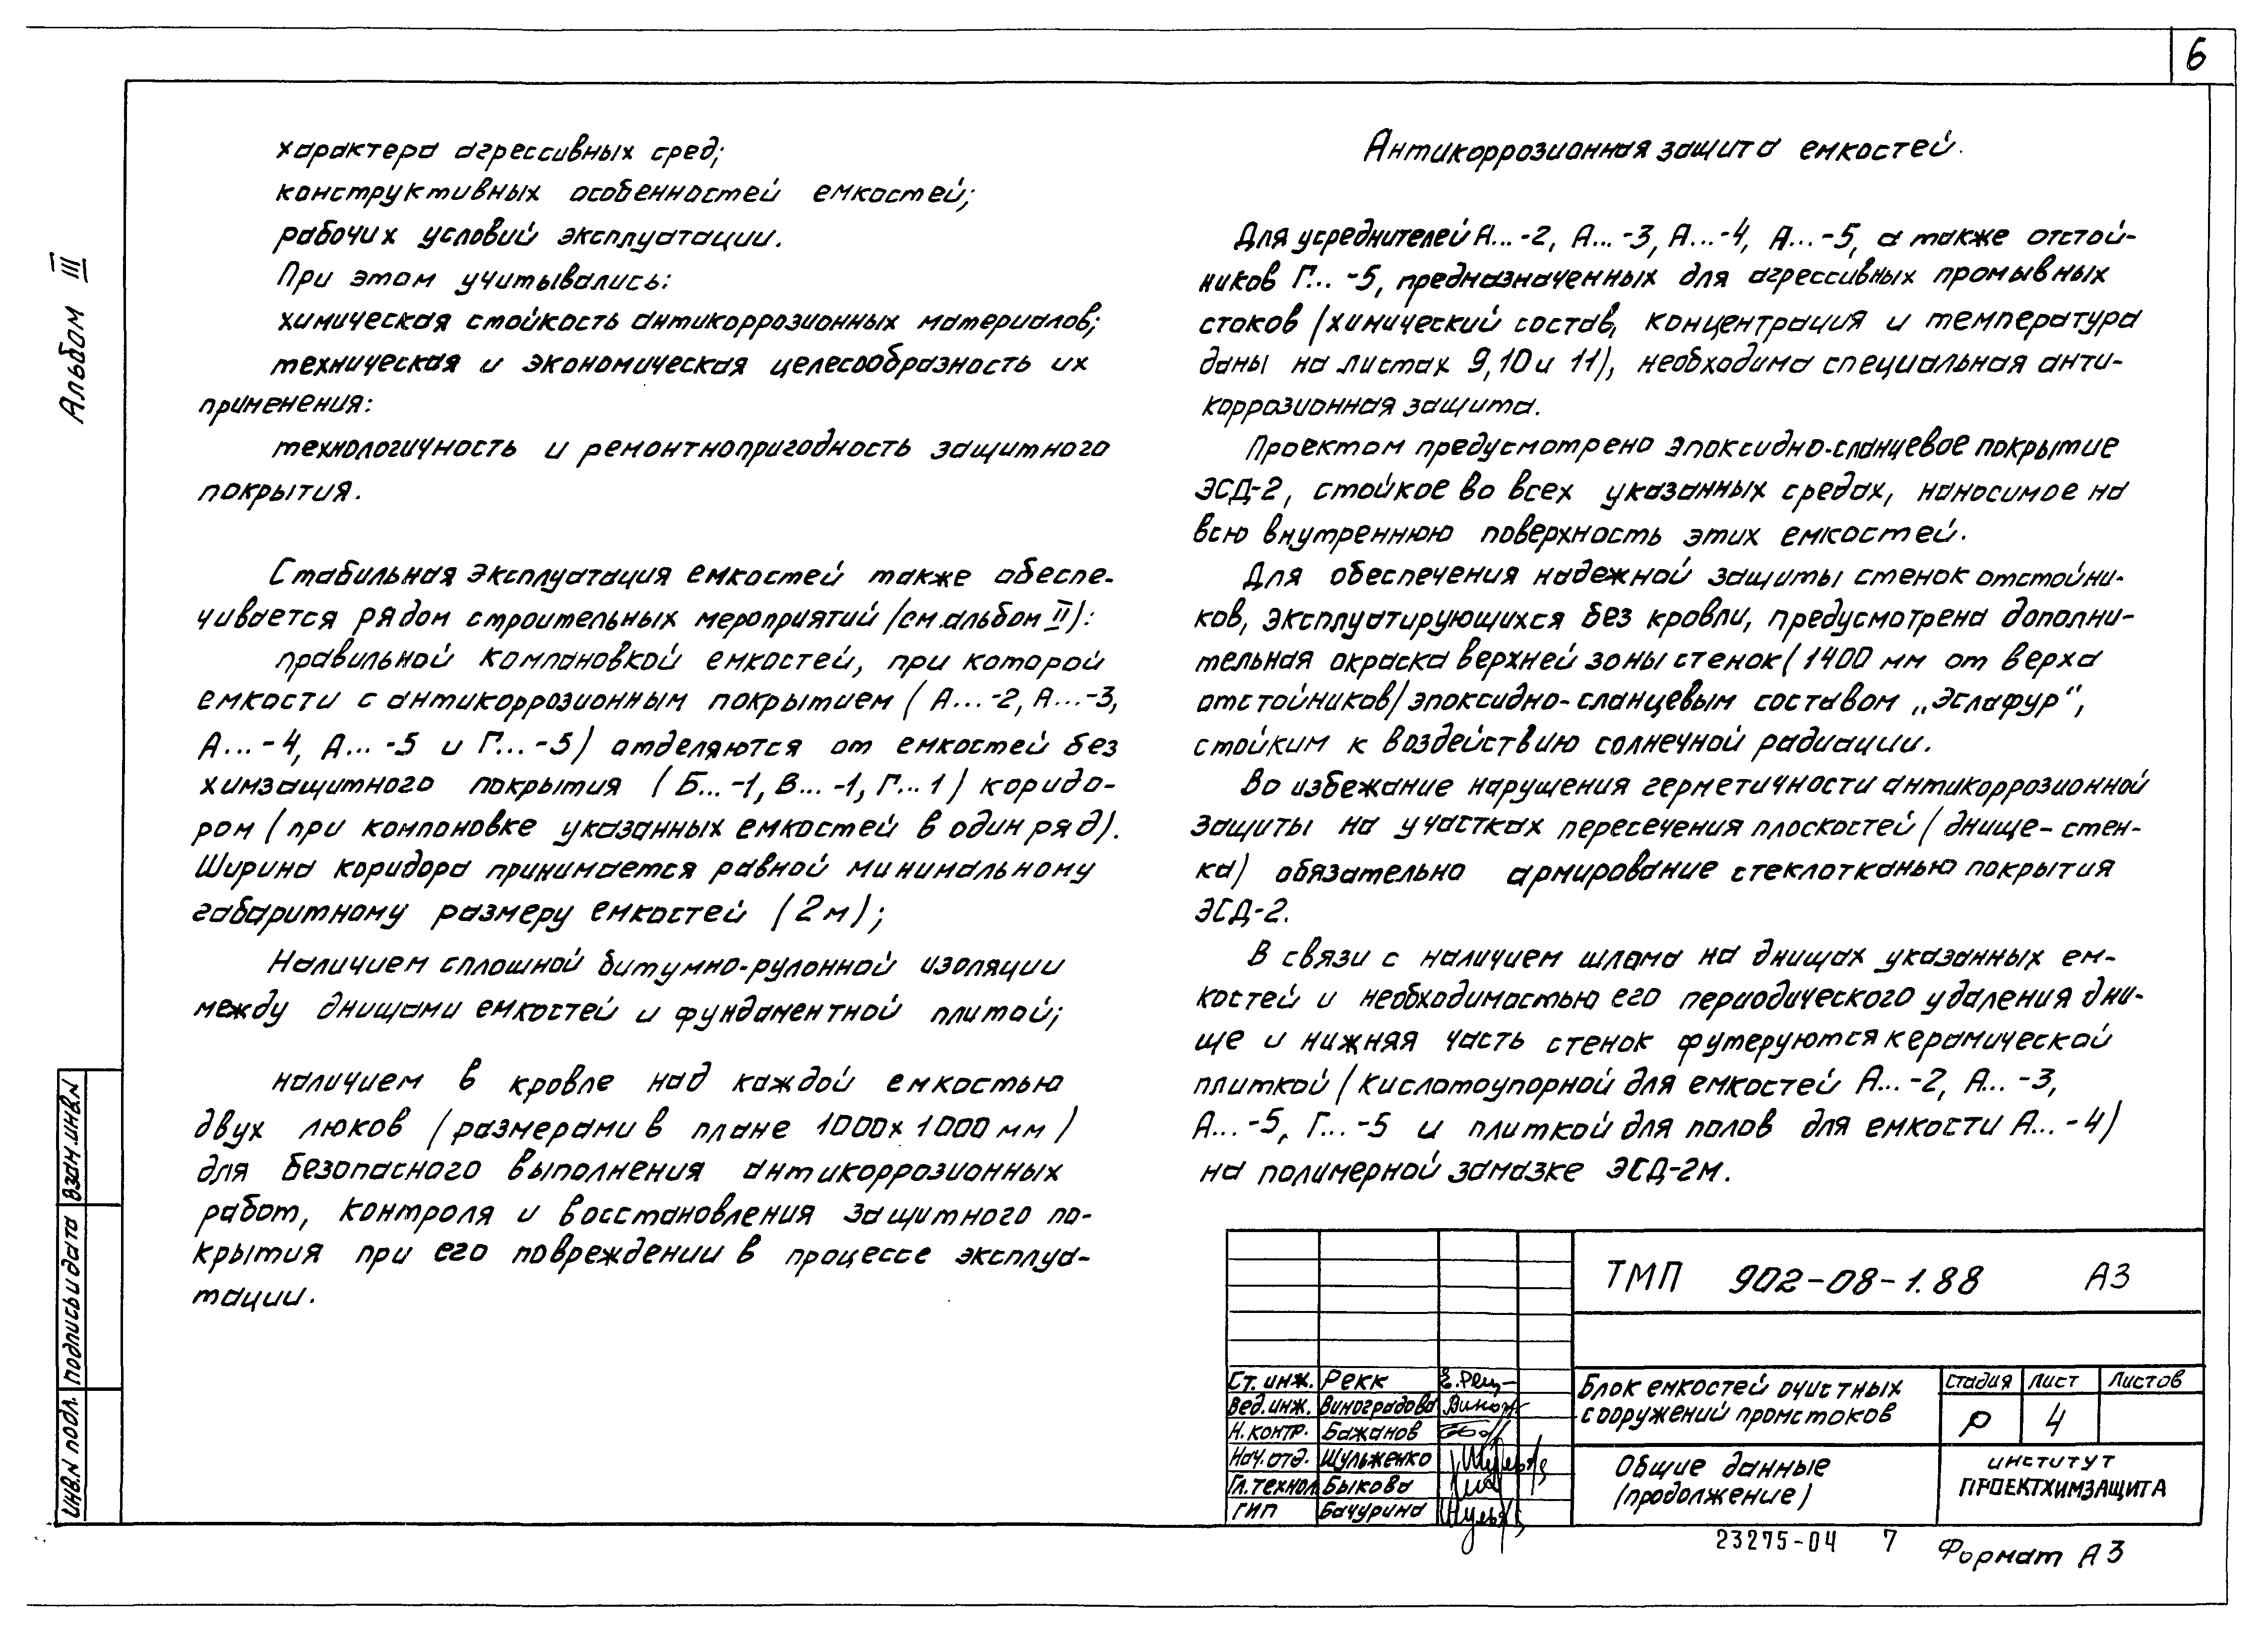 6
Альбом III
характера агрессивных сред;
конструктивных особенностей емкостей;
рабочих условий эксплуатации.
При этом учитывались:
химическая стойкость антикоррозионных материалов;
техническая и экономическая целесообразность их
применения:
технологичность и ремонтнопригодность защитного
покрытия.
Стабильная эксплуатация емкостей также обеспе-
чивается рядом строительных мероприятий (см.альбом II):
правильной компановкой емкостей, при которой
емкости с антикоррозионным покрытием (А...-2, А...-3,
А...-4, А...-5 и Г...-5) отделяются от емкостей без
химзащитного покрытия (Б...-1, В...-1, Г...1) коридо-
ром (при компоновке указанных емкостей в один ряд).
Ширина коридора принимается равной минимальному
габаритному размеру емкостей (2м);
Наличием сплошной битумно-рулонной изоляции
между днищами емкостей и фундаментной плитой;
наличием в кровле над каждой емкостью
двух люков (размерами в плане 1000х1000мм)
для безопасного выполнения антикоррозионных
работ, контроля и восстановления защитного по-
крытия при его повреждении в процессе эксплуа-
тации.
Антикоррозионная защита емкостей.
Для усреднителей А...-2, А...-3, А...-4, А...-5, а также отстой-
ников Г...-5, предназначенных для агрессивных промывных
стоков (химический состав, концентрация и температура
даны на листах 9,10 и 11), необходима специальная анти-
коррозионная защита.
Проектом предусмотрено эпоксидно-сланцевое покрытие
ЭСД-2, стойкое во всех указанных средах, наносимое на
всю внутреннюю поверхность этих емкостей.
Для обеспечения надежной защиты стенок отстойни-
ков, эксплуатирующихся без кровли, предусмотрена дополни-
тельная окраска верхней зоны стенок (1400 мм от верха
отстойников) эпоксидно-сланцевым составом „Эслафур“,
стойким к воздействию солнечной радиации.
Во избежание нарушения герметичности антикоррозионной
защиты на участках пересечения плоскостей (днище-стен-
ка) обязательно армирование стеклотканью покрытия
ЭСД-2.
В связи с наличием шлама на днищах указанных ем-
костей и необходимостью его периодического удаления дни-
ще и нижняя часть стенок футеруются керамической
плиткой (кислотоупорной для емкостей А...-2, А...-3,
А...-5, Г...-5 и плиткой для полов для емкости А...-4)
на полимерной замазке ЭСД-2м.
Взам.инв.N
Подпись и дата
Инв.N подл.
ТМП 902-08-1.88 А3
Ст. инж. Рекк
Вед.инж. Виноградова
Н.контр. Бажанов
Нач.отд. Шульженко
Гл.технол. Быкова
ГИП Бачурина
Блок емкостей очистных
сооружений промстоков
Стадия Лист Листов
Р 4
Общие данные
(продолжение)
ИНСТИТУТ
ПРОЕКТХИМЗАЩИТА
23275-04 7
Формат А3